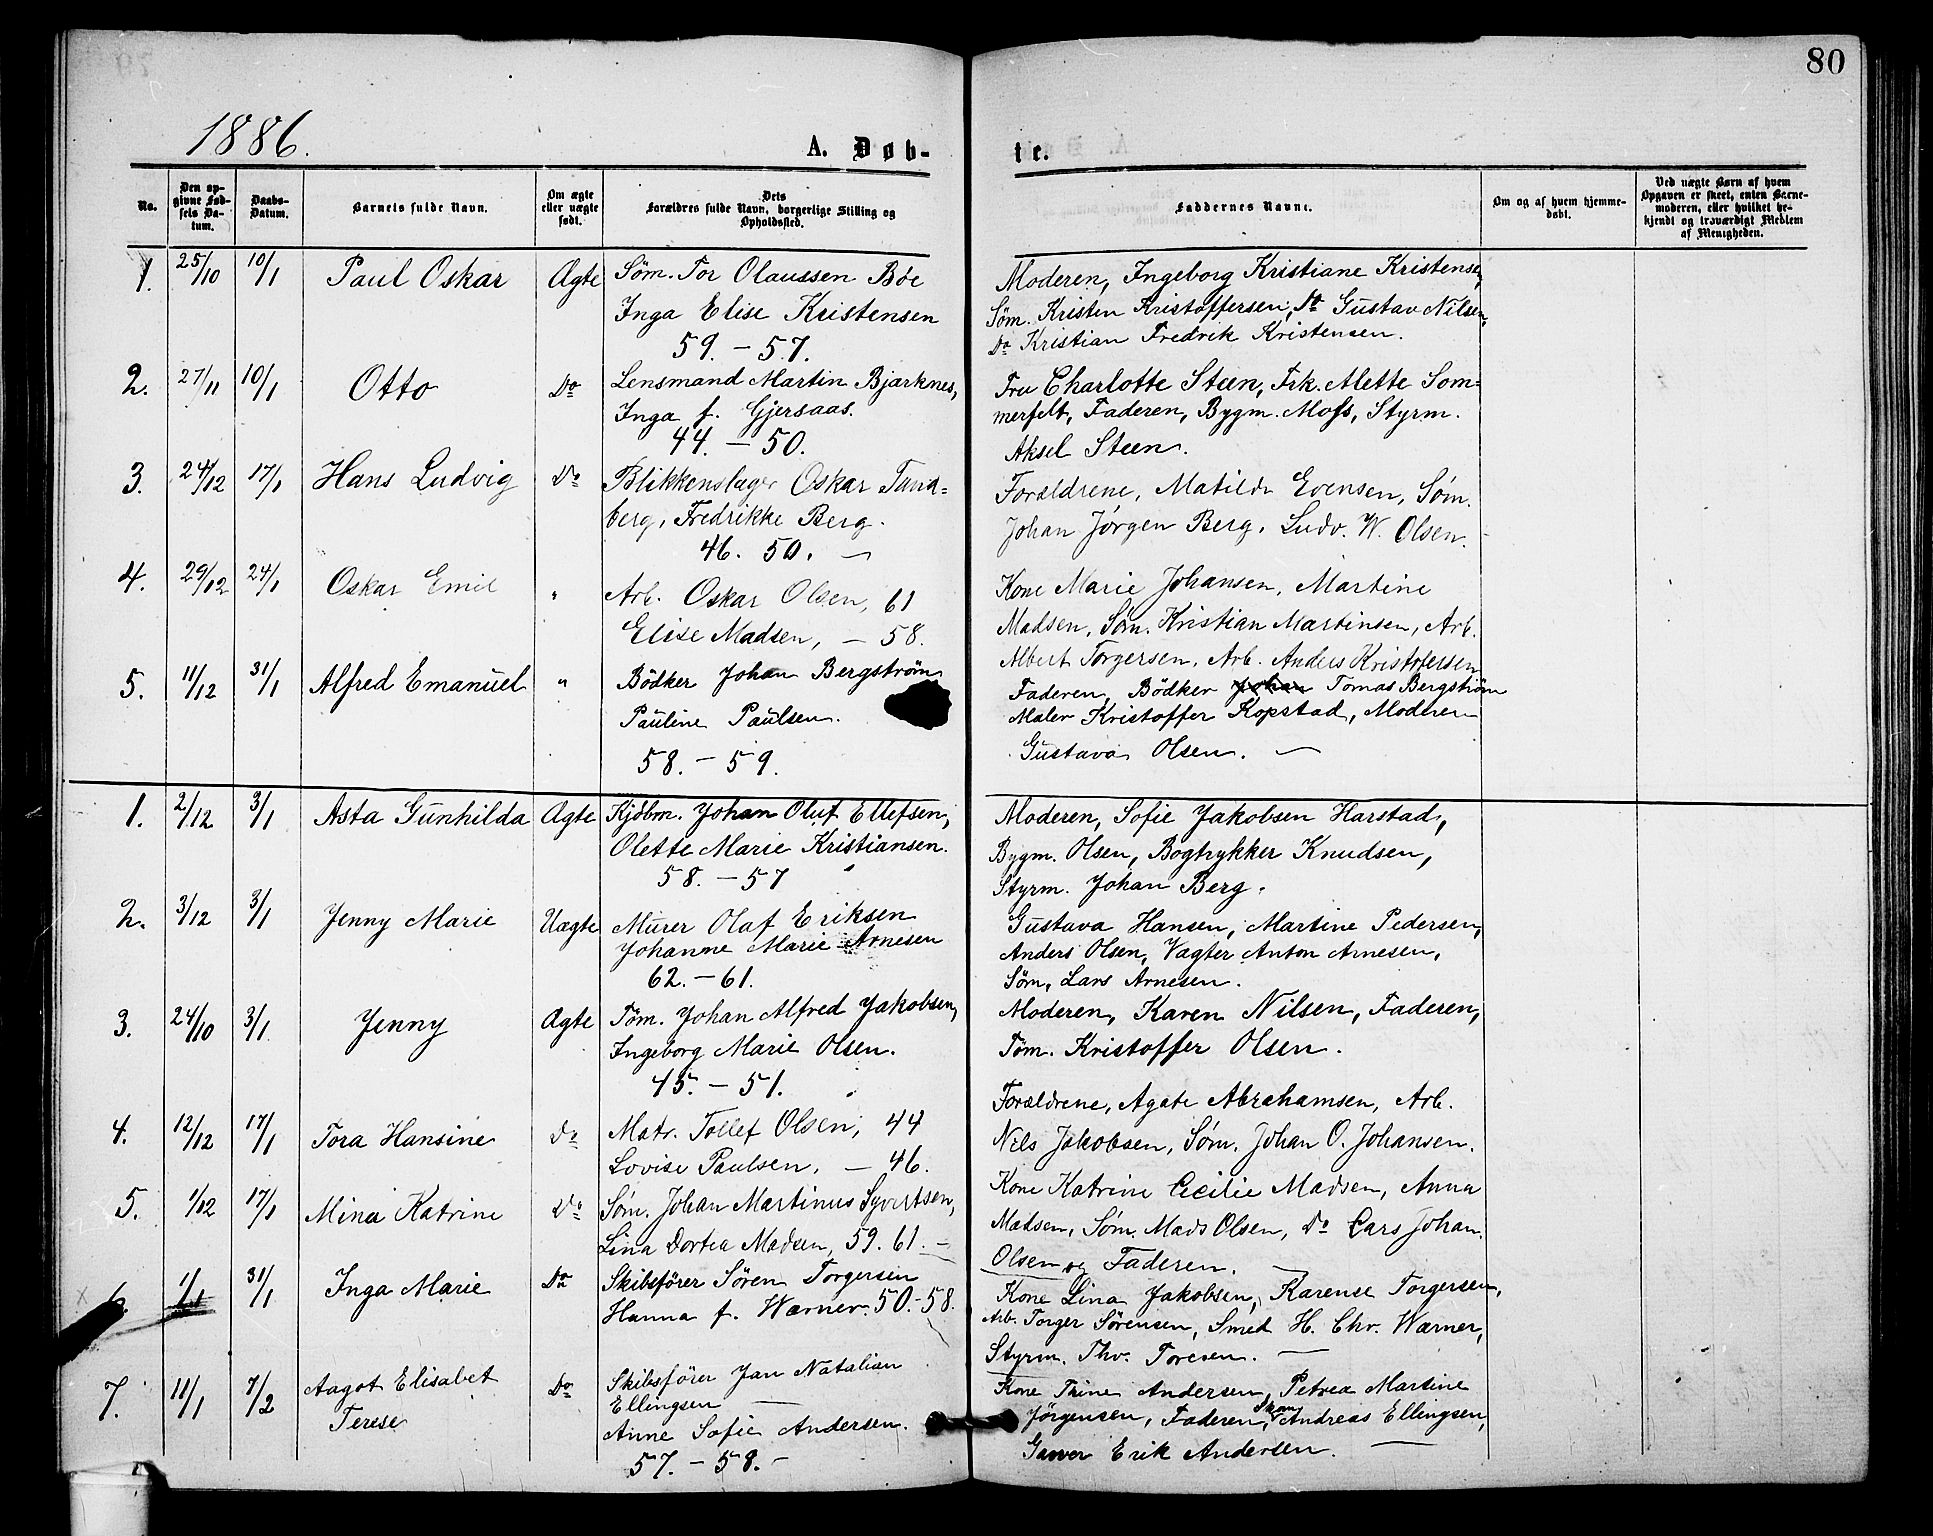 80
1886.
A. Døb-
te.
No.
Den op-
givne Fød-
sels Da-
tum.
Daabs-
Datum.
Barnets fulde Navn.
Om ægte
eller uægte
født.
Dets
Forældres fulde Navn, borgerlige Stilling og
Opholdssted.
Faddernes Navne.
Om og af hvem hjemme-
døbt.
Ved uægte Børn af hvem
Opgaven er skeet, enten Barne-
moderen, eller hvilket be-
kjendt og troværdigt Medlem
af Menigheden.
1. 25/10 10/1 Paul Oskar Ægte Søm. Tor Olaussen Bøe
Inga Elise Kristensen
59. – 57.
Moderen, Ingeborg Kristiane Kristensen,
Søm. Kristen Kristoffersen, Do Gustav Nilsen,
Do Kristian Fredrik Kristensen.
2. 27/11 10/1 Otto Do Lensmand Martin Bjerknes,
Inga f. Gjersaas.
44. – 50.
Fru Charlotte Steen, Frk. Alette Som-
merfelt, Faderen, Bygm. Moss, Styrm.
Aksel Steen.
3. 24/12 17/1 Hans Ludvig Do Blikkenslager Oskar Tand-
berg, Fredrikke Berg.
46. 50. –
Forældrene, Matilde Evensen, Søm.
Johan Jørgen Berg, Ludv. W. Olsen.
4. 29/12 24/1 Oskar Emil " Arb. Oskar Olsen, 61
Elise Madsen, – 58.
Kone Marie Johansen, Martine
Madsen, Søm. Kristian Martinsen, Arb.
Albert Torgersen, Arb. Anders Kristofersen
5. 11/12 31/1 Alfred Emanuel " Bødker Johan Bergstrøm
Pauline Paulsen.
58. – 59.
Faderen, Bødker Johan Tomas Bergstrøm
Maler Kristoffer Kopstad, Moderen
Gustava Olsen. –
1. 2/12 3/1 Asta Gunhilda Ægte Kjøbm. Johan Oluf Ellefsen,
Olette Marie Kristiansen.
58. – 57
Moderen, Sofie Jakobsen Harstad,
Bygm. Olsen, Bogtrykker Knudsen,
Styrm. Johan Berg.
2. 3/12 3/1 Jenny Marie Uægte Murer Olaf Eriksen
Johanne Marie Arnesen
62. – 61.
Gustava Hansen, Martine Pedersen,
Anders Olsen, Vagter Anton Arnesen,
Søm. Lars Arnesen.
3. 24/10 3/1 Jenny Ægte Tøm. Johan Alfred Jakobsen,
Ingeborg Marie Olsen.
45. – 51.
Moderen, Karen Nilsen, Faderen,
Tøm. Kristoffer Olsen.
4. 12/12 17/1 Tora Hansine Do Matr. Tollef Olsen, 44
Lovise Paulsen, – 46.
Forældrene, Agate Abrahamsen, Arb.
Nils Jakobsen, Søm. Johan O. Johansen.
5. 1/12 17/1 Mina Katrine Do Søm. Johan Martinus Syvertsen,
Lina Dortea Madsen, 59. 61. –
Kone Katrine Cecilie Madsen, Anna
Madsen, Søm. Mads Olsen, Do Lars Johan
Olsen og Faderen. –
6. 1/11 31/1 Inga Marie Do Skibsfører Søren Torgersen
Hanna f. Wærner. 50. – 58.
Kone Lina Jakobsen, Karense Torgersen,
Arb. Torger Sørensen, Smed H. Chr. Wærner,
Styrm. Thv. Toresen. –
7. 11/1 7/2 Aagot Elisabet
Terese
Do Skibsfører Jan Natalian
Ellingsen –
Anne Sofie Andersen.
57. – 58. –
Kone Trine Andersen, Petrea Martine
Jørgensen, Faderen, Andreas Ellingsen,
Garver Erik Andersen. –